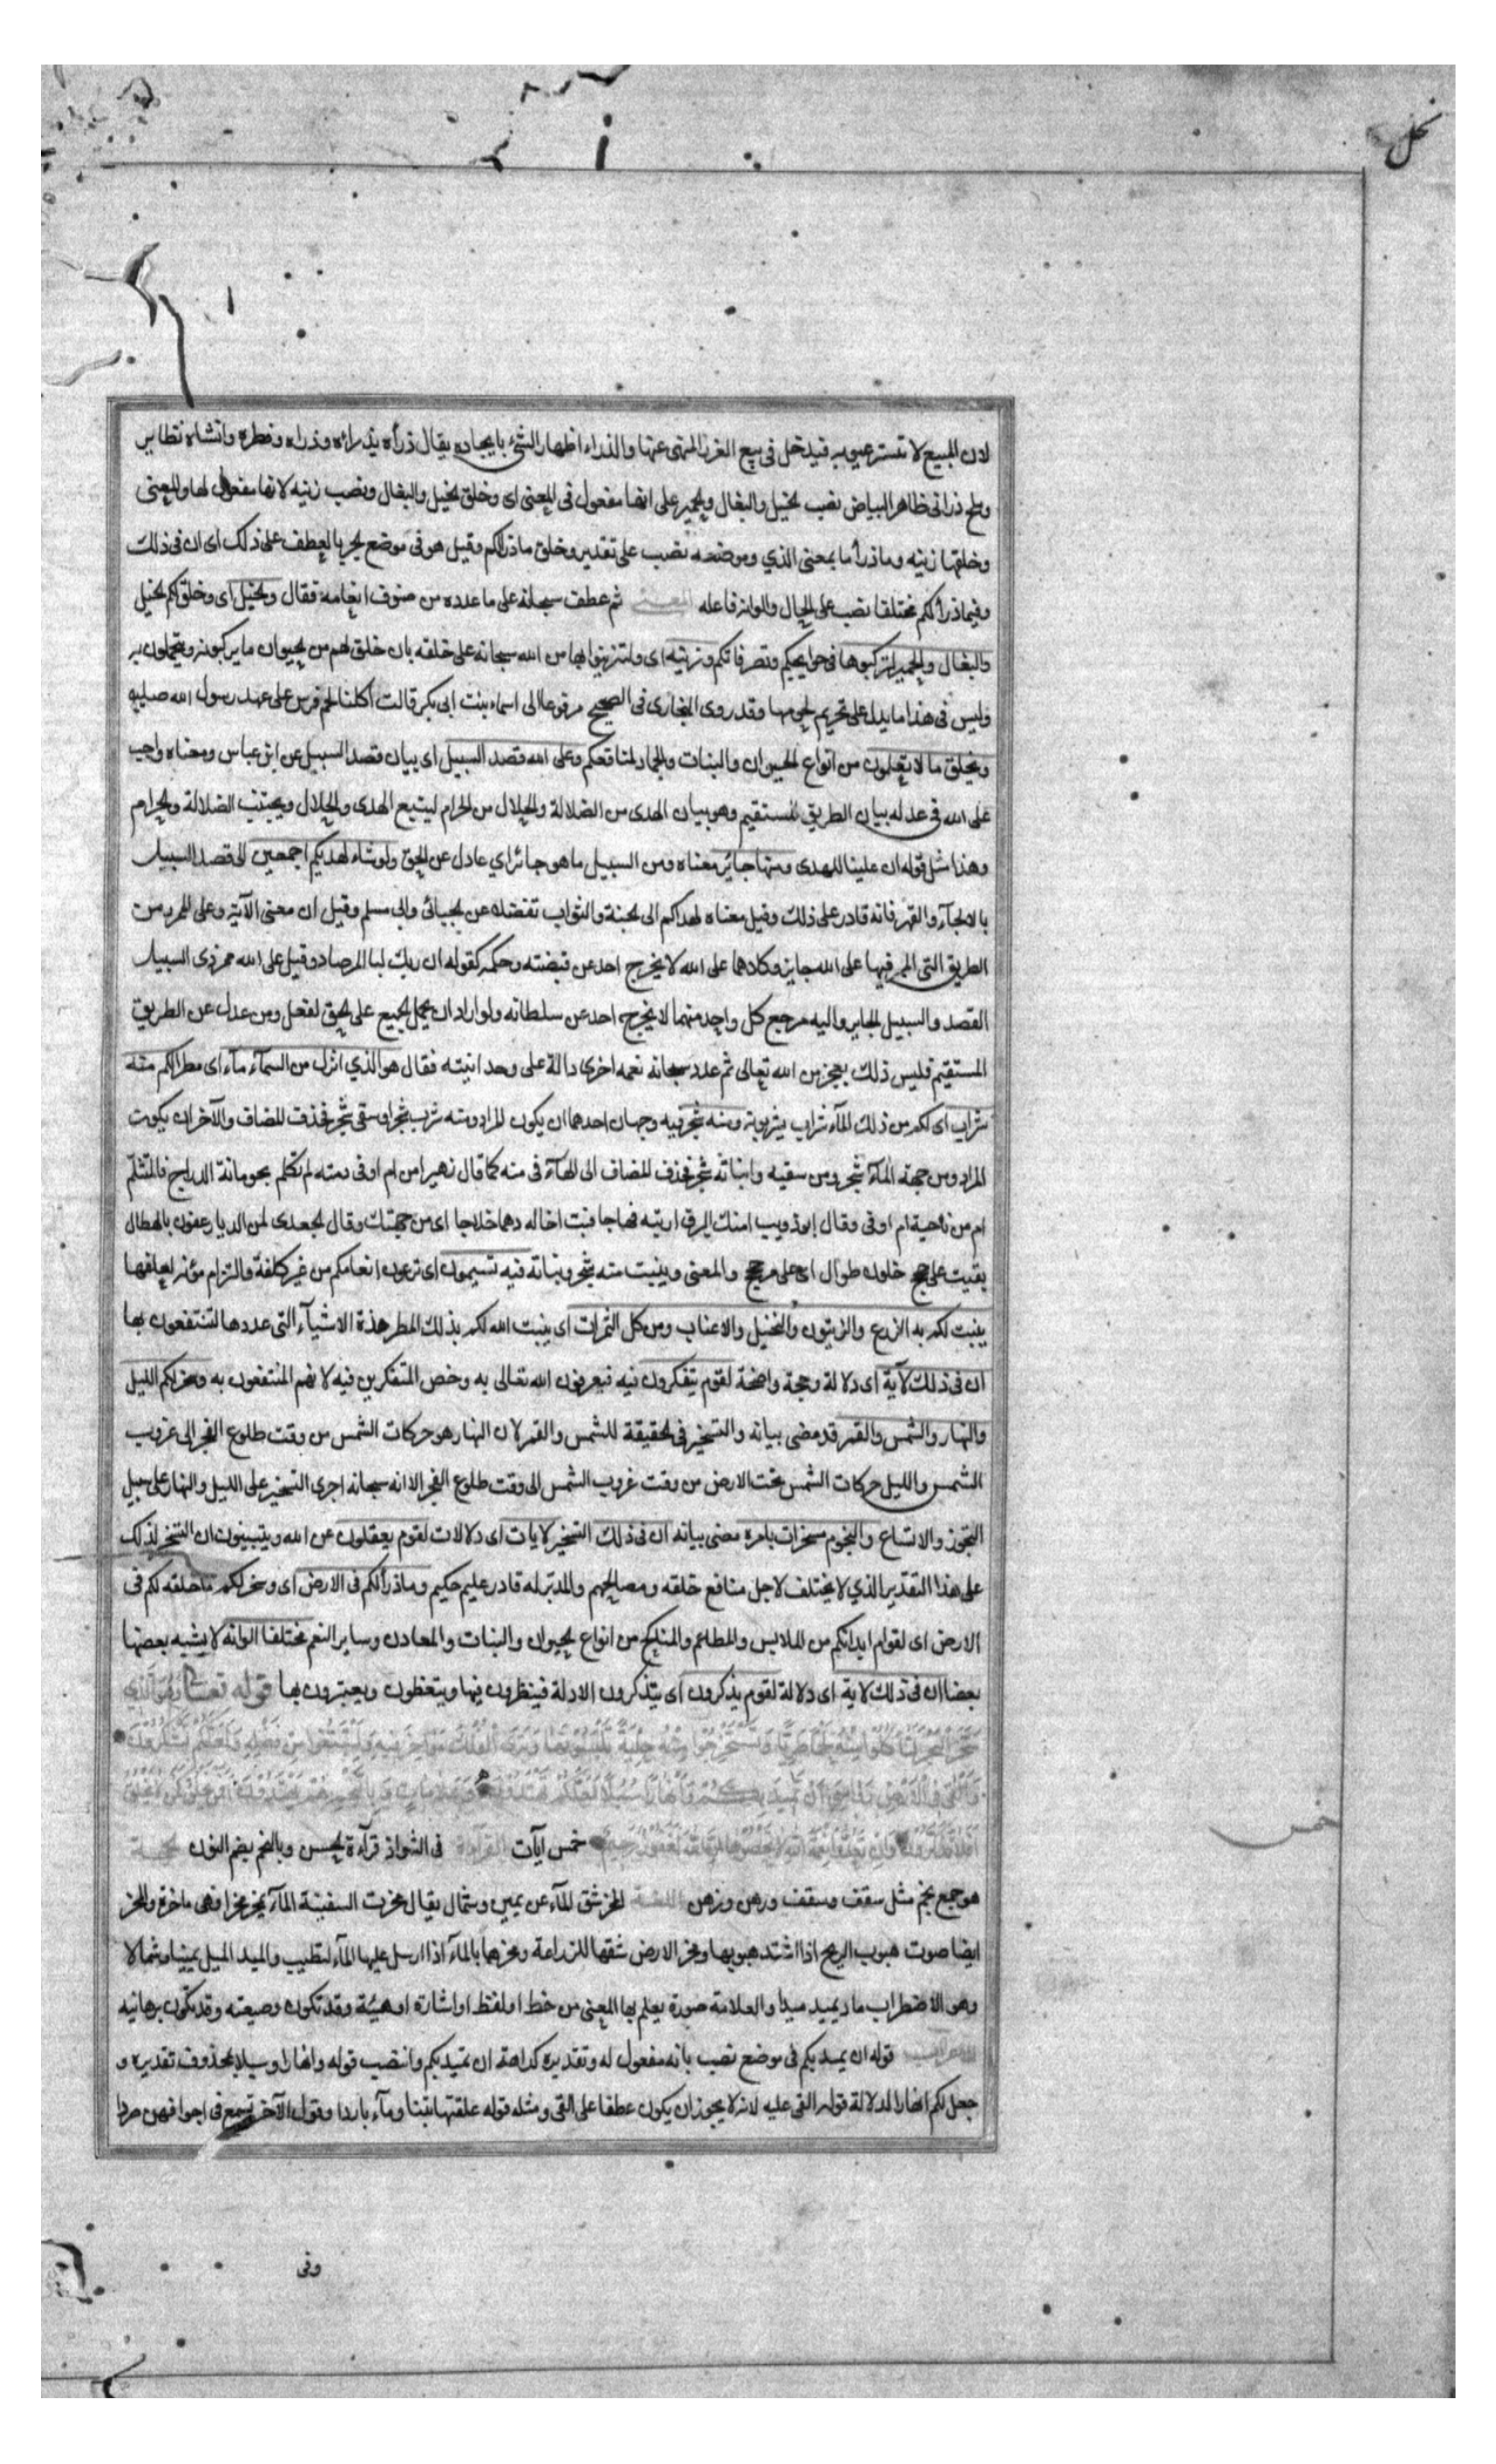 نحل
لان المبيع لا تستر عيوبه فيدخل فى بيع الغرر المنهى عنها والذراء اظهار الشئ بايجاده يقال ذرأه يذرأه وذراه وفطره وانشاه نظاير
وملح ذرانى ظاهر البياض نصب الخيل والبغال والحمير على انها مفعول فى المعنى اى وخلق الخيل والبغال ونصب زينه لانها مفعول لها والمعنى
وخلقها زينه وماذرأ ما بمعنى الذي وموضعه نصب على تقدير وخلق ماذرألكم وقيل هو فى موضع الجر بالعطف على ذلك اى ان فى ذلك
وفيما ذرألكم مختلفا نصب على الحال والوانه فاعله المعنى ثم عطف سبحانه على ما عدده من صنوف انعامه فقال والخيل اى وخلق لكم الخيل
والبغال والحمير لتركبوها فى حوايجكم وتصرفاتكم وزينه اى ولتتزينوا بها من الله سبحانه على خلقه بان خلق لهم من الحيوان ما يركبونه ويتجملون به
وليس فى هذا ما يدل على تحريم لحومها وقد روى البخارى فى الصحيح مرفوعا الى اسماء بنت ابى بكر قالت اكلنا لحم فرس على عهد رسول الله
ويخلق ما لا تعلمون من انواع الحيوان والنبات والجماد لمنافعكم وعلى الله قصد السبيل اى بيان قصد السبيل عن ابن عباس ومعناه واجب
على الله فى عدله بيان الطريق المستقيم وهو بيان الهدى من الضلالة والحلال من الحرام ليتبع الهدى والحلال ويجتنب الضلالة والحرام
وهذا مثل قوله ان علينا للهدى ومنها جائر معناه ومن السبيل ما هو جائر اي عادل عن الحق ولو شاء لهديكم اجمعين الى قصد السبيل
بالالجآء والقهر فانه قادر على ذلك وقيل معناه لهداكم الى الجنة والثواب تفضلا عن الجبائى وابى مسلم وقيل ان معنى الآية وعلى الممر من
الطريق التى الممر فيها على الله جايز وكلاهما على الله لا يخرج احد عن قبضته وحكمه كقوله ان ربك لبا لمرصاد وقيل على الله ممر ذى السبيل
القصد والسبيل الجاير واليه مرجع كل واحد منهما لا يخرج احد عن سلطانه ولو اراد ان يحمل الجميع على الحق لفعل ومن عدل عن الطريق
المستقيم فليس ذلك بعجز من الله تعالى ثم عدد سبحانه نعمه اخرى دالة على وحدانيته فقال هو الذي انزل من السمآء مآء اى مطرا لكم منه
شراب اى لكم من ذلك المآء شراب يشربونه ومنه شجر فيه وجهان احدهما ان يكون المراد ومنه شرب شجر او سقى شجر فحذف المضاف والآخر ان يكون
المراد ومن جهة المآء شجر ومن سقيه وانباته شجر فحذف المضاف الى الهآء فى منه كما قال زهير امن ام اوفى دمنه لم تكلم بحومانة الدراج فالمتثلم
ام من ناحية ام اوفى وقال ابو ذويب امنك البرق ارقبه فهاجا فبت اخاله دهما خلاجا اى من جهتك وقال الجعدى لمن الديار عفون بالهطال
بقيت على حجج خلون طوال اى على مر حجج والمعنى وينبت منه شجر ونباته فيه تسيمون اى ترعون انعامكم من غير كلفة والتزام مؤنه لعلفها
ينبت لكم به الزرع والزيتون والنخيل والاعناب ومن كل الثمرات اى ينبت الله لكم بذلك المطر هذه الاشيآء التى عددها لتنتفعون بها
ان فى ذلك لآية اى دلالة وحجة واضحة لقوم يتفكرون فيه فيعرفون الله تعالى به وخص المتفكرين فيه لانهم المنتفعون به وسخر لكم الليل
والنهار والشمس والقمر قد مضى بيانه والتسخير فى الحقيقة للشمس والقمر لان النهار هو حركات الشمس من وقت طلوع الفجر الى غروب
الشمس والليل حركات الشمس تحت الارض من وقت غروب الشمس الى وقت طلوع الفجر الا انه سبحانه اجرى التسخير على الليل والنهار على سبيل
التجوز والاتساع والنجوم مسخرات بامره مضى بيانه ان فى ذلك التسخير لايات اى دلالات لقوم يعقلون عن الله ويتبينون ان المسخر لذلك
على هذا التقدير الذي لا يختلف لاجل منافع خلقه ومصالحهم والمدبر له قادر عليم حكيم وماذرألكم فى الارض اى وسخر لكم ما خلقه لكم فى
الارض اى لقوام ابدانكم من الملابس والمطاعم والمناكح من انواع الحيوان والنبات والمعادن وساير النعم مختلفا الوانه لا يشبه بعضها
بعضا ان فى ذلك لاية اى دلالة لقوم يذكرون اى يتذكرون الادلة فينظرون فيها ويتعظون ويعتبرون بها قوله تعالى وهو الذي
سخر البحر لتاكلوا منه لحما طريا وتستخرجوا منه حلية تلبسونها وترى الفلك مواخر فيه ولتبتغوا من فضله ولعلكم تشكرون
والقى فى الارض رواسى ان تميد بكم وانهارا وسبلا لعلكم تهتدون وعلامات وبالنجم هم يهتدون افمن يخلق كمن لا يخلق
افلا تذكرون وان تعدوا نعمة الله لا تحصوها ان الله لغفور رحيم خمس آيات القرآءة فى الشواذ قرآءة الحسن وبالنجم بضم النون الحجة
هو جمع نجم مثل سقف وسقف ورهن ورهن اللغة المخر شق المآء عن يمين وشمال يقال مخرت السفينة المآء تمخر مخرا فهى ماخرة والمخر
ايضا صوت هبوب الريح اذا اشتد هبوبها ومخر الارض شقها للزراعة ومخرها بالمآء اذا ارسل عليها المآء لتطيب والميد الميل يمينا وشمالا
وهو الاضطراب ماد يميد ميدا والعلامة صورة يعلم بها المعنى من خط او لفظ او اشارة او هيئة وقد تكون وضعيته وقد تكون برهانيه
الاعراب قوله ان يميد بكم فى موضع نصب بانه مفعول له وتقديره كراهة ان تميد بكم وانتصب قوله وانهارا وسبلا بمحذوف تقديره و
جعل لكم انهارا لدلالة قوله القى عليه لانه لا يجوز ان يكون عطفا على القى ومثله قوله علفتها تبنا ومآء باردا وقول الآخر تسمع فى اجوافهن صردا
خمس
وفى